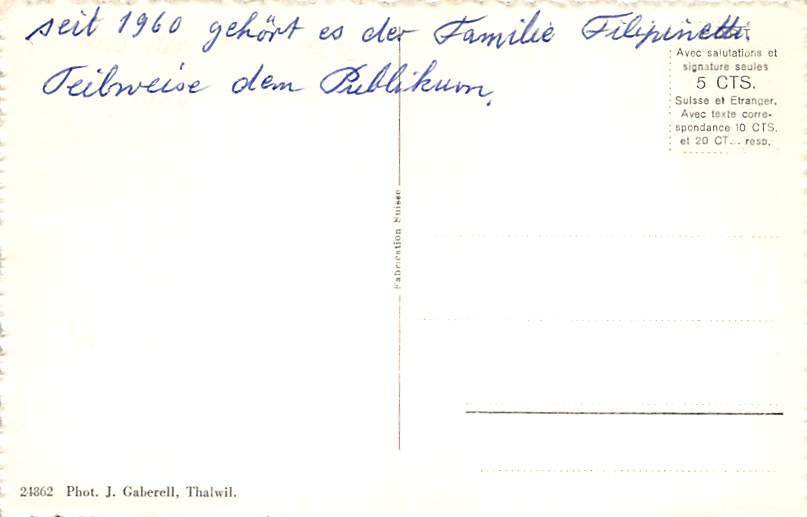 seit 1960 gehört es der Familie Filipinetti.
Teilweise dem Publikum.
Avec salutations et
signature seules
5 CTS.
Suisse et Etranger.
Avec texte corre-
spondance 10 CTS.
et 20 CT... resp.
Fabrication Suisse
24862 Phot. J. Gaberell, Thalwil.